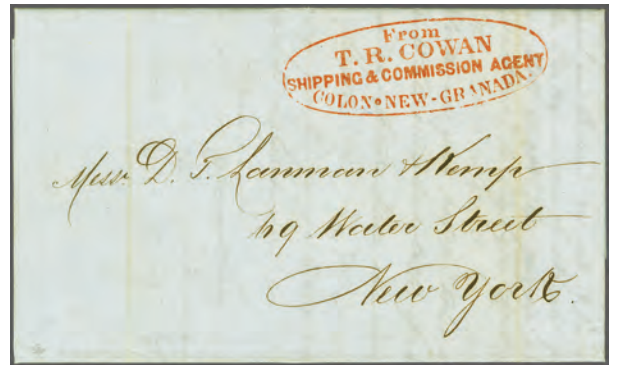 From
T. R. COWAN
SHIPPING & COMMISSION AGENT
COLON • NEW-GRANADA.
Messrs. D. T. Lanman & Kemp
69 Water Street
New York.